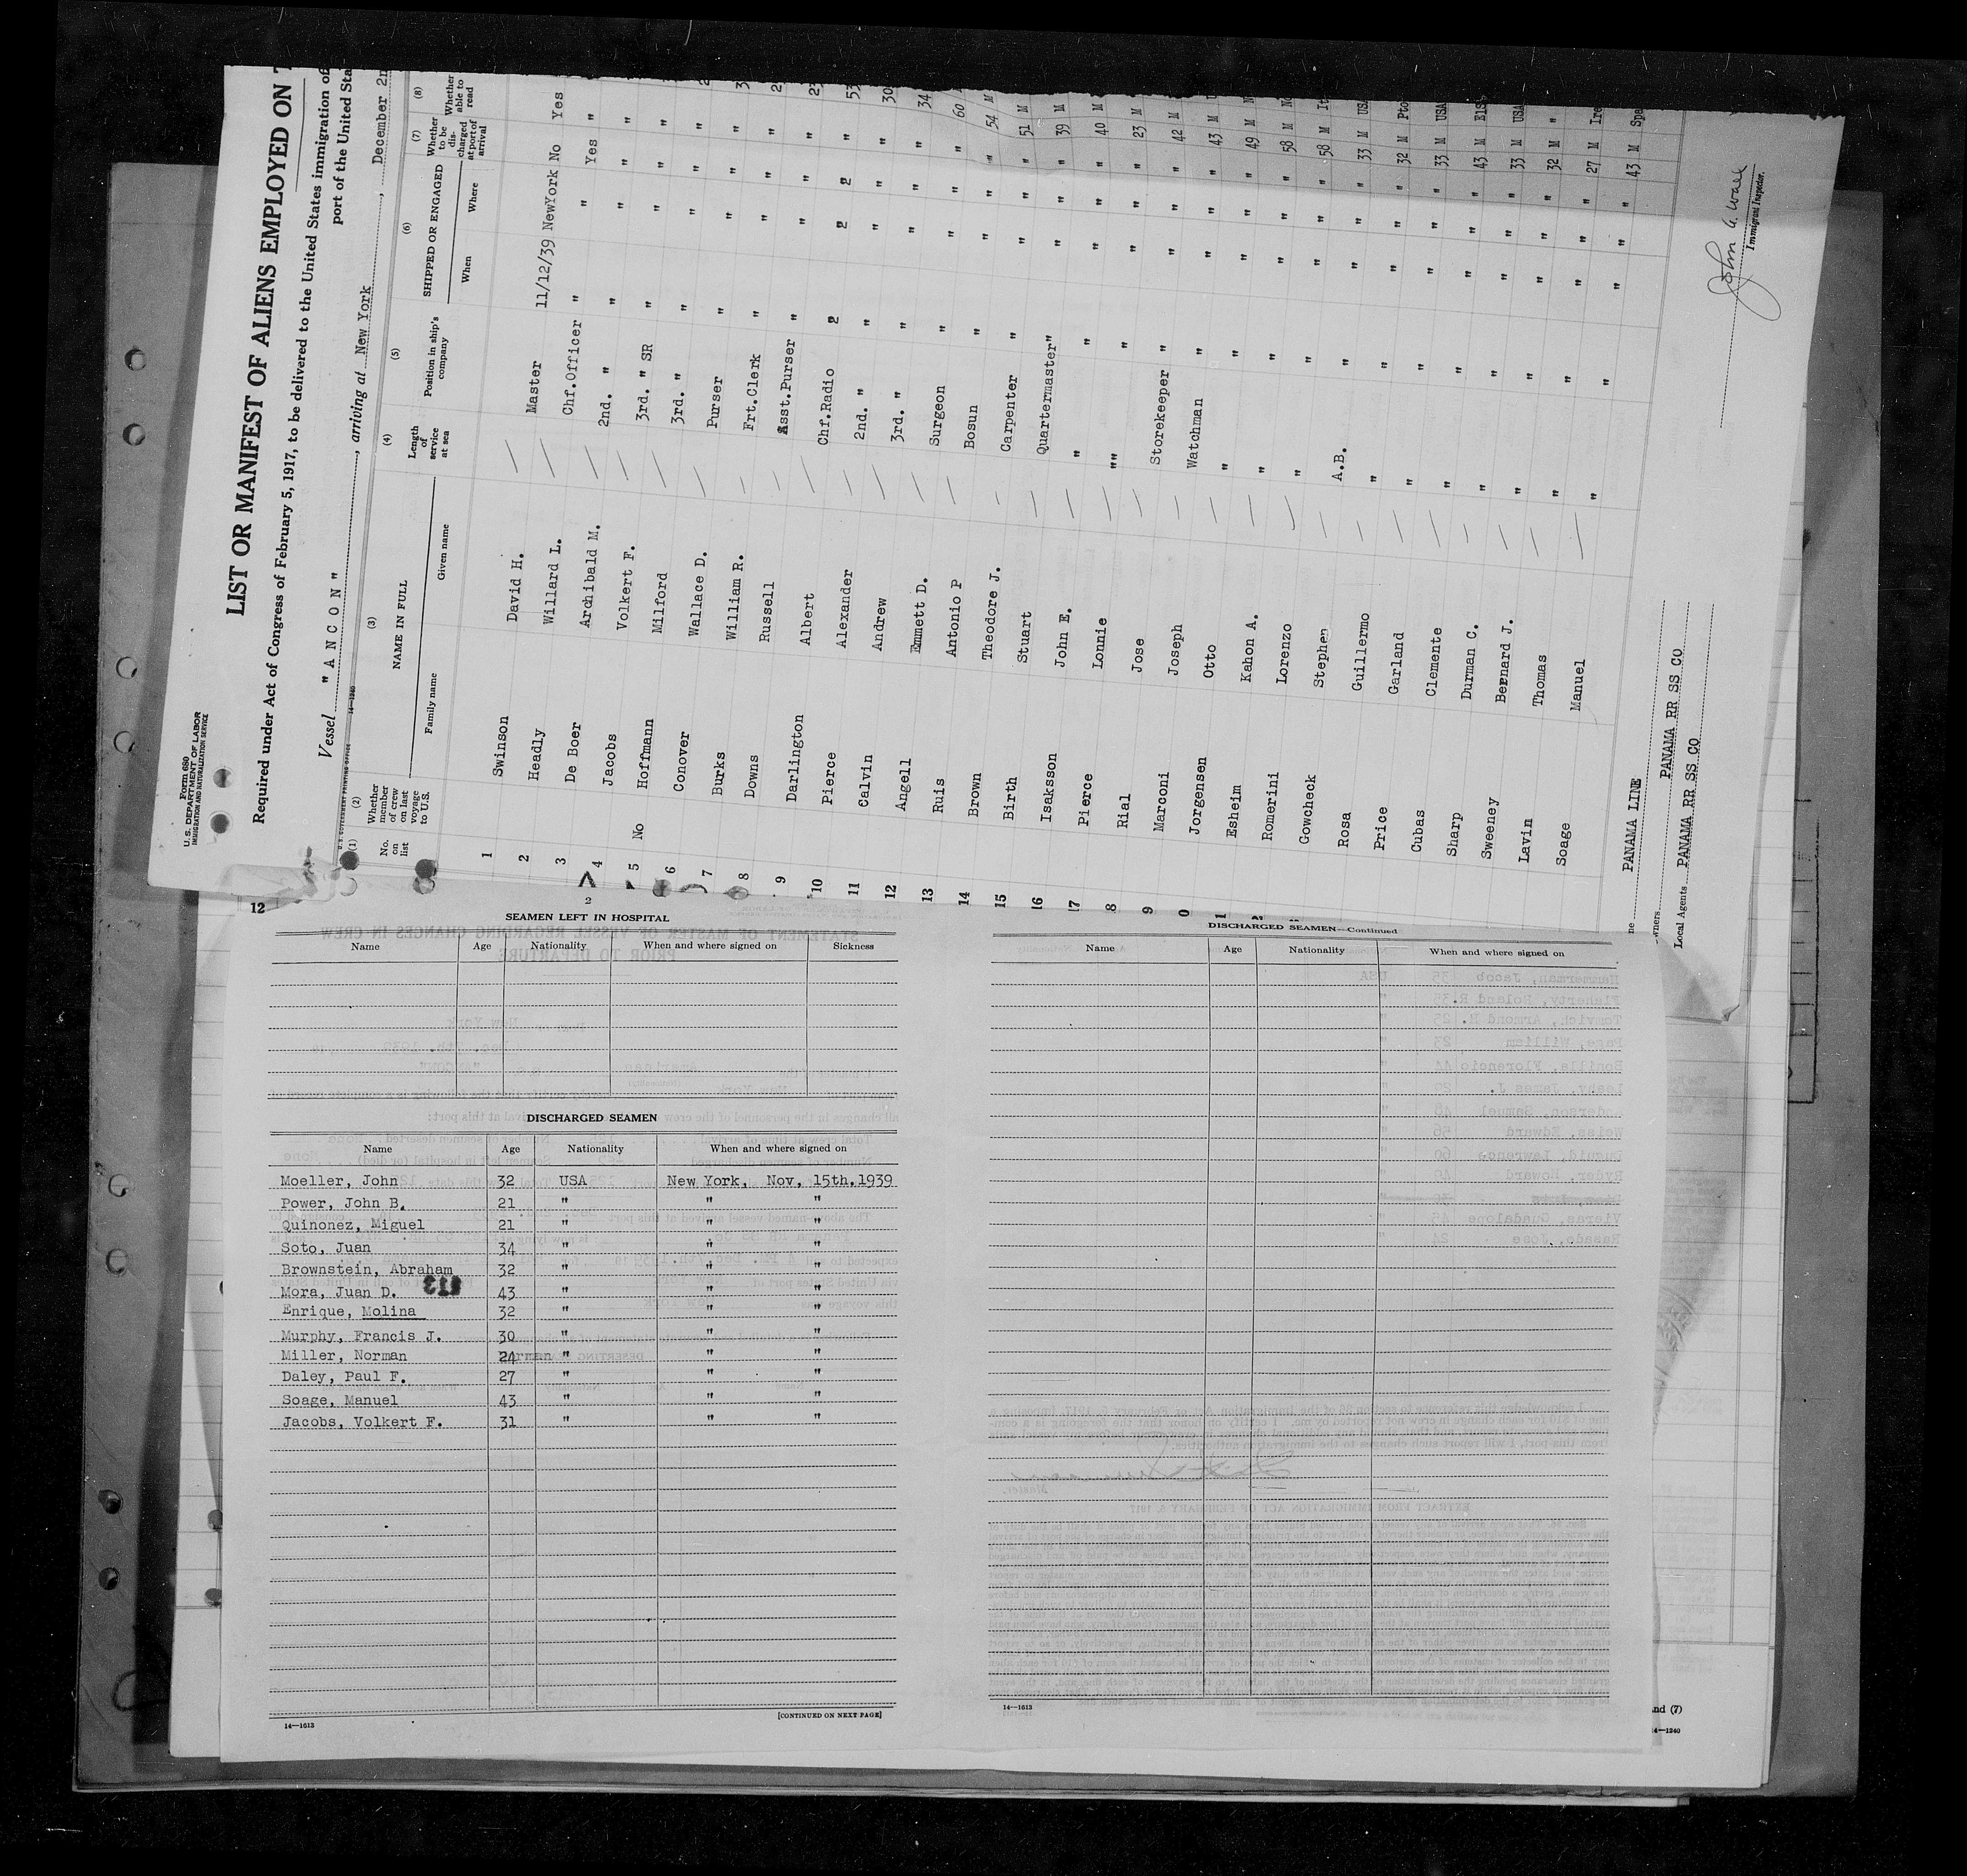 Form 680
U. S. DEPARTMENT OF LABOR
IMMIGRATION AND NATURALIZATION SERVICE
LIST OR MANIFEST OF ALIENS EMPLOYED ON
Required under Act of Congress of February 5, 1917, to be delivered to the United States immigration of
port of the United Sta
Vessel " A N C O N ", arriving at New York, December 2n
(1) (2) (3) (4) (5) (6) (7) (8)
No. on list
Whether member of crew on last voyage to U.S.
NAME IN FULL
Family name Given name
Length of service at sea
Position in ship's company
SHIPPED OR ENGAGED
When Where
Whether to be discharged at port of arrival
Whether able to read
1 Swinson David H. Master 11/12/39 NewYork No Yes
2 Headly Willard L. Chf.Officer " " Yes "
3 De Boer Archibald M. 2nd. " " " " "
4 Jacobs Volkert F. 3rd. " SR " " " "
5 No Hoffmann Milford 3rd. " " " " "
6 Conover Wallace D. Purser " " " "
7 Burks William R. Frt.Clerk " " " "
8 Downs Russell Asst.Purser " " " "
9 Darlington Albert Chf.Radio
10 Pierce Alexander 2nd. " " " "
11 Calvin Andrew 3rd. " " " "
12 Angell Emmett D. Surgeon " " "
13 Ruis Antonio P Bosun " " " 60
14 Brown Theodore J. Carpenter " " " 54 M
15 Birth Stuart Quartermaster" " " 51 M
16 Isaksson John E. " " " " 39 M
17 Pierce Lonnie "" " " " 40 M
18 Rial Jose Storekeeper " " " 23 M
Marconi Joseph Watchman " " " 42 M
Jorgensen Otto " " " " 43 M
Esheim Kahon A. " " " " 49 M
Romerini Lorenzo " " " " 58 M
Gowcheck Stephen A.B. " " " 58 M It
Rosa Guillermo " " " " 33 M USA
Price Garland " " " " 32 M Pto
Cubas Clemente " " " " 33 M USA
Sharp Durman C. " " " " 43 M ElS
Sweeney Bernard J. " " " " 33 M USA
Lavin Thomas " " " " 32 M "
Soage Manuel " " " " 27 M Ire
43 M Spa
PANAMA LINE
PANAMA RR SS CO
Local Agents PANAMA RR SS CO
John A. Wall
Immigrant Inspector.
12
2
SEAMEN LEFT IN HOSPITAL
Name Age Nationality When and where signed on Sickness
DISCHARGED SEAMEN
Name Age Nationality When and where signed on
Moeller, John 32 USA New York, Nov, 15th.1939
Power, John B. 21 " " "
Quinonez, Miguel 21 " " "
Soto, Juan 34 " " "
Brownstein, Abraham 32 " " "
Mora, Juan D. 43 " " "
Enrique, Molina 32 " " "
Murphy, Francis J. 30 " " "
Miller, Norman 24 " " "
Daley, Paul F. 27 " " "
Soage, Manuel 43 " " "
Jacobs, Volkert F. 31 " " "
14—1613
[CONTINUED ON NEXT PAGE]
DISCHARGED SEAMEN—Continued
Name Age Nationality When and where signed on
14—1613
and (7)
14—1240